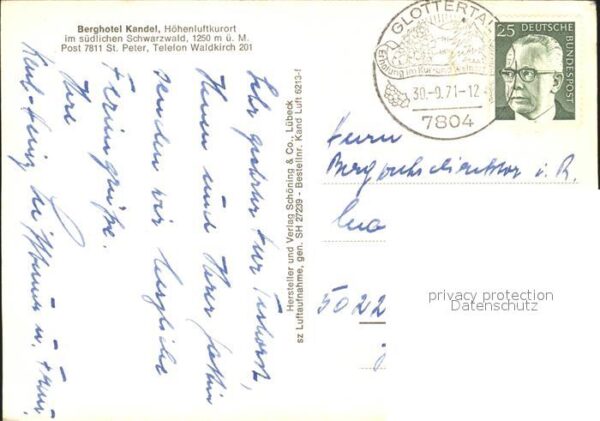 Berghotel Kandel, Höhenluftkurort
im südlichen Schwarzwald, 1250 m ü. M.
Post 7811 St. Peter, Telefon Waldkirch 201
Sehr geehrter Herr
Ihnen und Ihrer Gattin
senden wir herzliche
Feriengrüße.
Ihre
Karl-Heinz
Hersteller und Verlag Schöning & Co., Lübeck
sz Luftaufnahme, gen. SH 27239 - Bestellnr. Kand Luft 6213-f
GLOTTERTAL
30.-9.71-12
7804
25
DEUTSCHE
BUNDESPOST
Herrn
i. R.
5022
privacy protection
Datenschutz